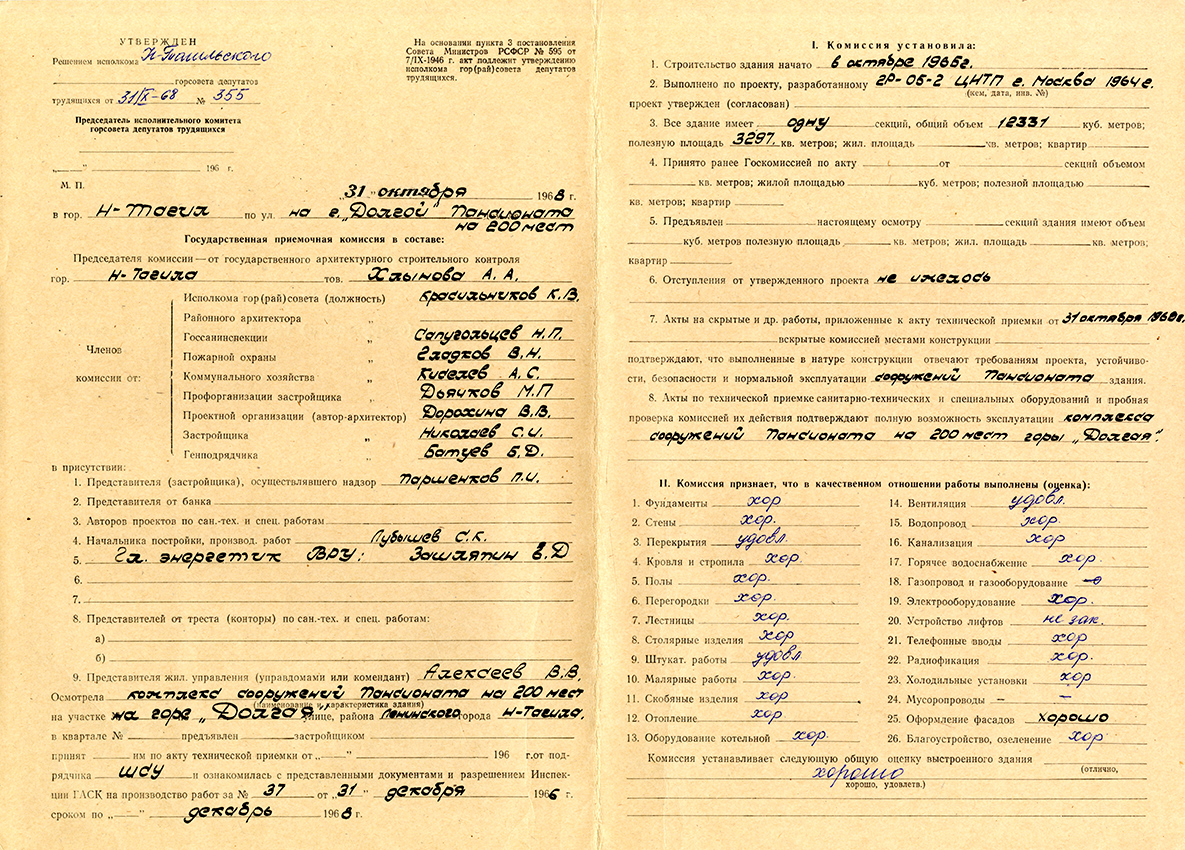 УТВЕРЖДЕН
Решением исполкома Н-Тагильского
горсовета депутатов
трудящихся от 31/X-68 № 355
Председатель исполнительного комитета
горсовета депутатов трудящихся
„ “ 196 г.
М. П.
На основании пункта 3 постановления
Совета Министров РСФСР № 595 от
7/IX-1946 г. акт подлежит утверждению
исполкома гор(рай)совета депутатов
трудящихся.
„31“ октября 1968 г.
в гор. Н-Тагил по ул. на г. „Долгой“ Пансионата
на 200 мест
Государственная приемочная комиссия в составе:
Председателя комиссии — от государственного архитектурного строительного контроля
гор. Н-Тагила тов. Хлынова А. А.
Членов комиссии от:
Исполкома гор(рай)совета (должность) Красильников К.В.
Районного архитектора „
Госсанинспекции „ Сапугольцев Н.П.
Пожарной охраны „ Гладков В.Н.
Коммунального хозяйства „ Киселев А.С.
Профорганизации застройщика „ Дьячков М.П
Проектной организации (автор-архитектор) Дорохина В.В.
Застройщика „ Николаев С.И.
Генподрядчика „ Батуев Б.Д.
в присутствии:
1. Представителя (застройщика), осуществлявшего надзор Паршенков П.И.
2. Представителя от банка
3. Авторов проектов по сан.-тех. и спец. работам
4. Начальника постройки, производ. работ Лубышев С.К.
5. Гл. энергетик ВРУ: Зашляпин Е.Д
6.
7.
8. Представителей от треста (конторы) по сан.-тех. и спец. работам:
а)
б)
9. Представителя жил. управления (управдомами или комендант) Алексеев В.В.
Осмотрела комплекс сооружений Пансионата на 200 мест
(наименование и характеристика здания)
на участке на горе „Долгая“ улице, района Ленинского города Н-Тагила,
в квартале № предъявлен застройщиком
принят им по акту технической приемки от „ “ 196 г. от под-
рядчика ШСУ и ознакомилась с представленными документами и разрешением Инспек-
ции ГАСК на производство работ за № 37 от „31“ декабря 1966 г.
сроком по „—“ декабрь 1968 г.
I. Комиссия установила:
1. Строительство здания начато в октябре 1965г.
2. Выполнено по проекту, разработанному 2Р-05-2 ЦНТП г. Москва 1964 г.
(кем, дата, инв. №)
проект утвержден (согласован)
3. Все здание имеет одну секций, общий объем 12331 куб. метров;
полезную площадь 3297, кв. метров; жил. площадь кв. метров; квартир
4. Принято ранее Госкомиссией по акту от секций объемом
кв. метров; жилой площадью куб. метров; полезной площадью
кв. метров; квартир
5. Предъявлен настоящему осмотру секций здания имеют объем
куб. метров полезную площадь кв. метров; жил. площадь кв. метров;
квартир
6. Отступления от утвержденного проекта не имелось
7. Акты на скрытые и др. работы, приложенные к акту технической приемки от 31 октября 1968г.
вскрытые комиссией местами конструкции
подтверждают, что выполненные в натуре конструкции отвечают требованиям проекта, устойчиво-
сти, безопасности и нормальной эксплуатации сооружений Пансионата здания.
8. Акты по технической приемке санитарно-технических и специальных оборудований и пробная
проверка комиссией их действия подтверждают полную возможность эксплуатации комплекса
сооружений Пансионата на 200 мест горы „Долгая“.
II. Комиссия признает, что в качественном отношении работы выполнены (оценка):
1. Фундаменты хор
2. Стены хор.
3. Перекрытия удовл.
4. Кровля и стропила хор.
5. Полы хор.
6. Перегородки хор.
7. Лестницы хор.
8. Столярные изделия хор
9. Штукат. работы удовл
10. Малярные работы хор.
11. Скобяные изделия хор
12. Отопление хор
13. Оборудование котельной хор.
14. Вентиляция удовл.
15. Водопровод хор.
16. Канализация хор
17. Горячее водоснабжение хор.
18. Газопровод и газооборудование
19. Электрооборудование хор.
20. Устройство лифтов не зак.
21. Телефонные вводы хор
22. Радиофикация хор.
23. Холодильные установки хор
24. Мусоропроводы — —
25. Оформление фасадов хорошо
26. Благоустройство, озеленение хор
Комиссия устанавливает следующую общую оценку выстроенного здания
(отлично,
хорошо
хорошо, удовлетв.)